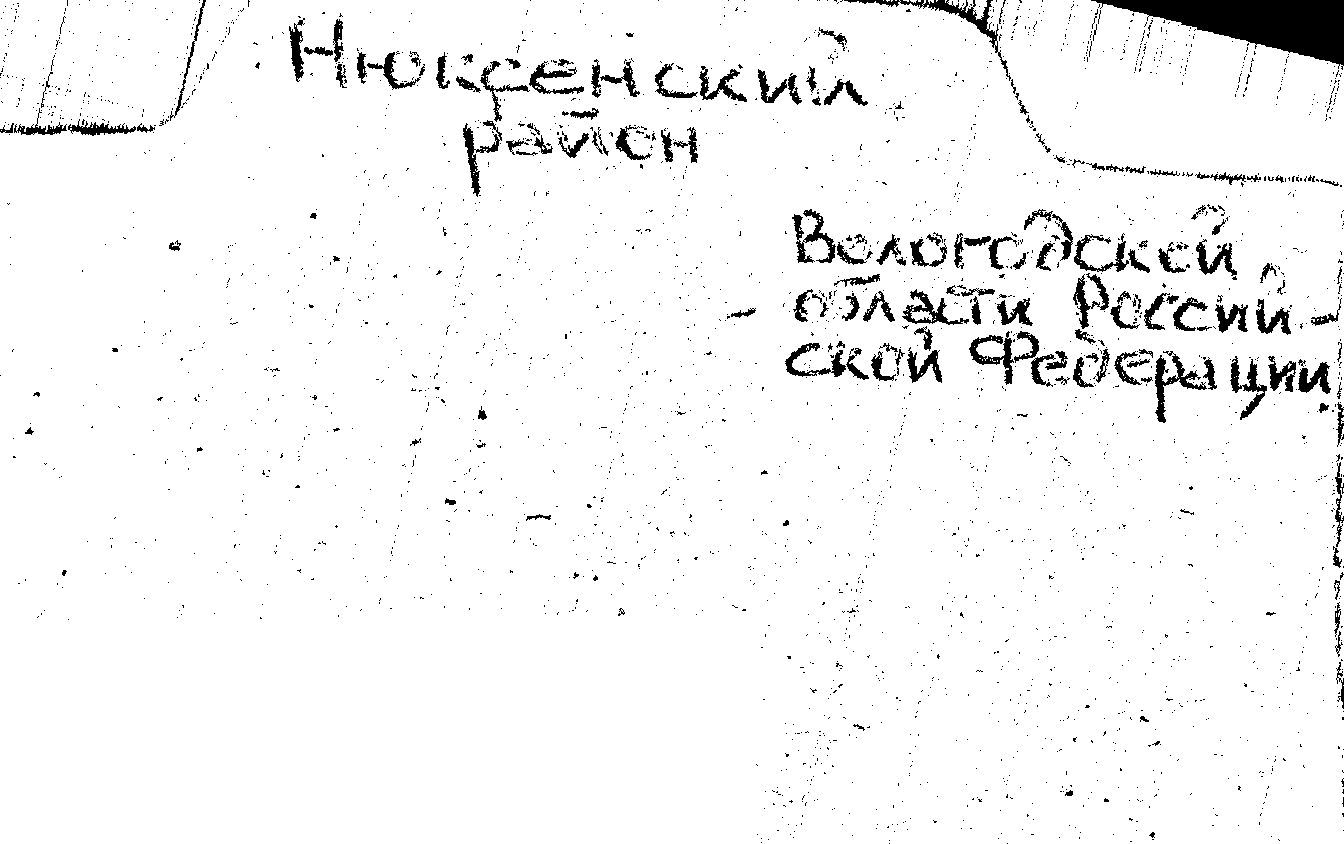 Нюксенский
район
Вологодской
- области Россий-
ской Федерации.